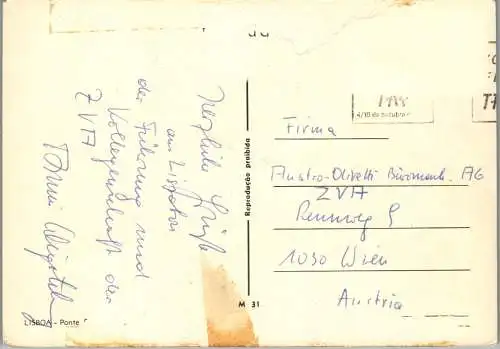 Herzliche Grüße
aus Lissabon
der Führung und
Kollegenschaft der
ZVA
LISBOA - Ponte
M 31
Reprodução proibida
4/10 de outubro
Firma
Austro-Olivetti Büromasch. AG
ZVA
Rennweg 9
1030 Wien
Austria